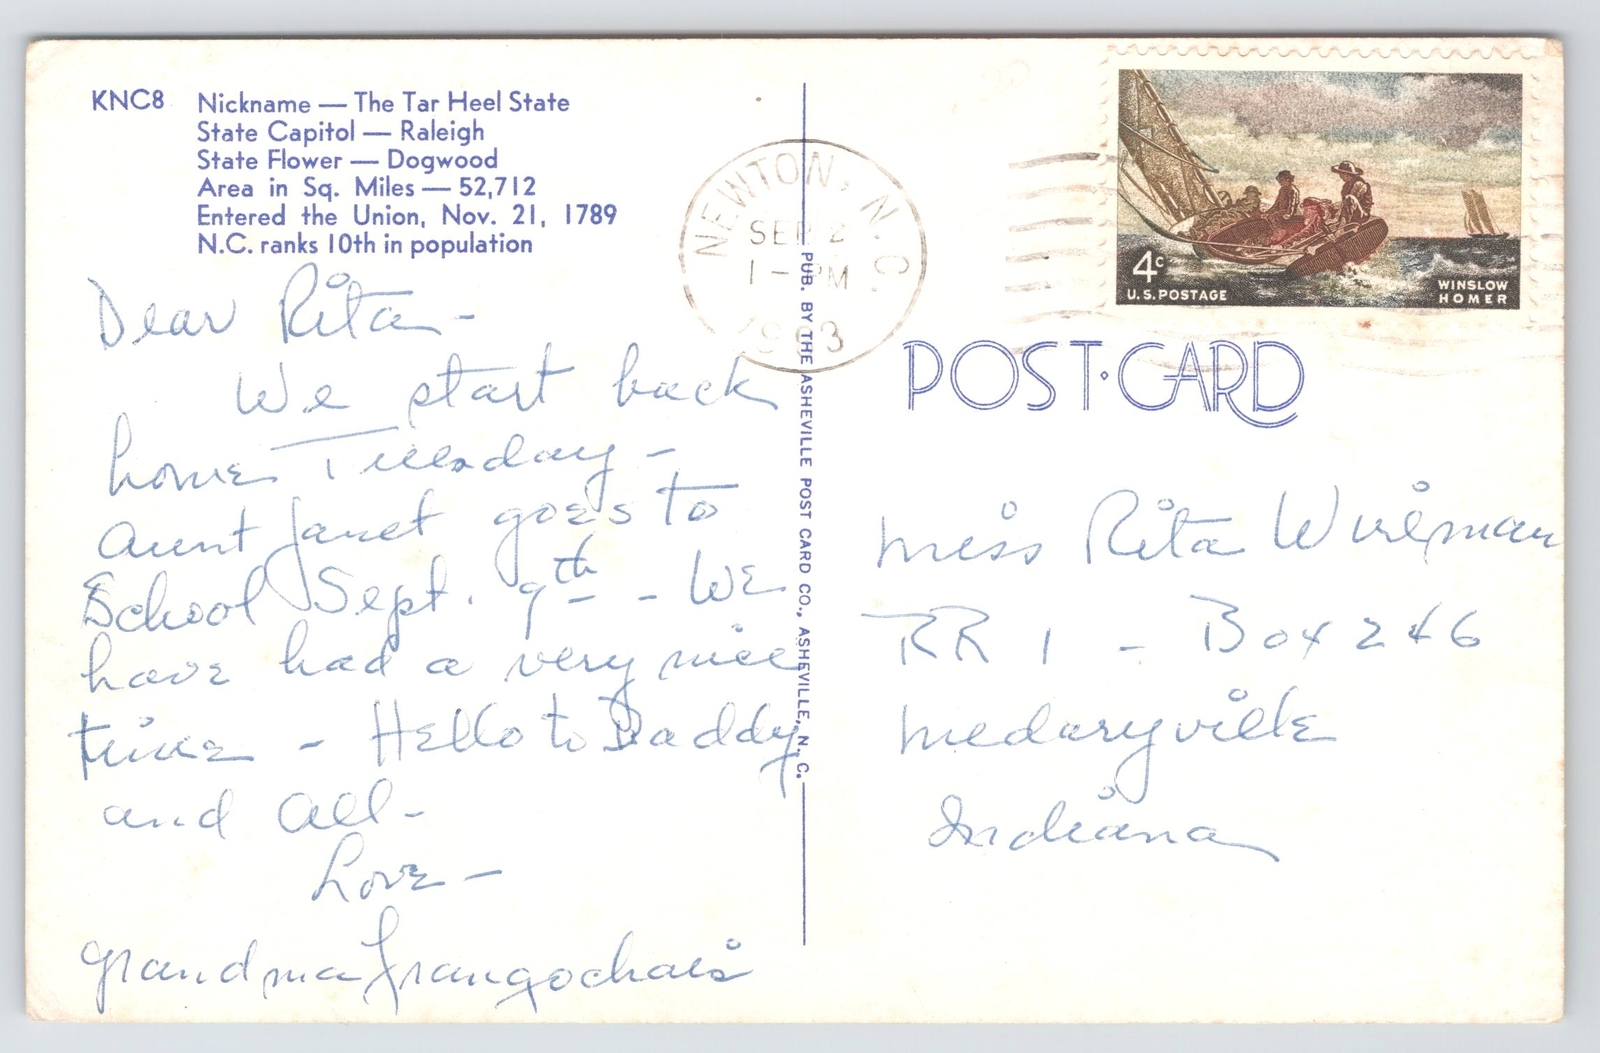 KNC8
Nickname — The Tar Heel State
State Capitol — Raleigh
State Flower — Dogwood
Area in Sq. Miles — 52,712
Entered the Union, Nov. 21, 1789
N.C. ranks 10th in population
Dear Rita -
We start back
home Tuesday -
Aunt Janet goes to
School Sept. 9th - We
have had a very nice
time - Hello to Daddy
and all -
Love -
Grandma
PUB. BY THE ASHEVILLE POST CARD CO., ASHEVILLE, N. C.
NEWTON, N. C.
SEP 2
1 - PM
1963
4c
U.S. POSTAGE
WINSLOW
HOMER
POST·CARD
Miss Rita Wireman
RR 1 - Box 246
Medaryville
Indiana